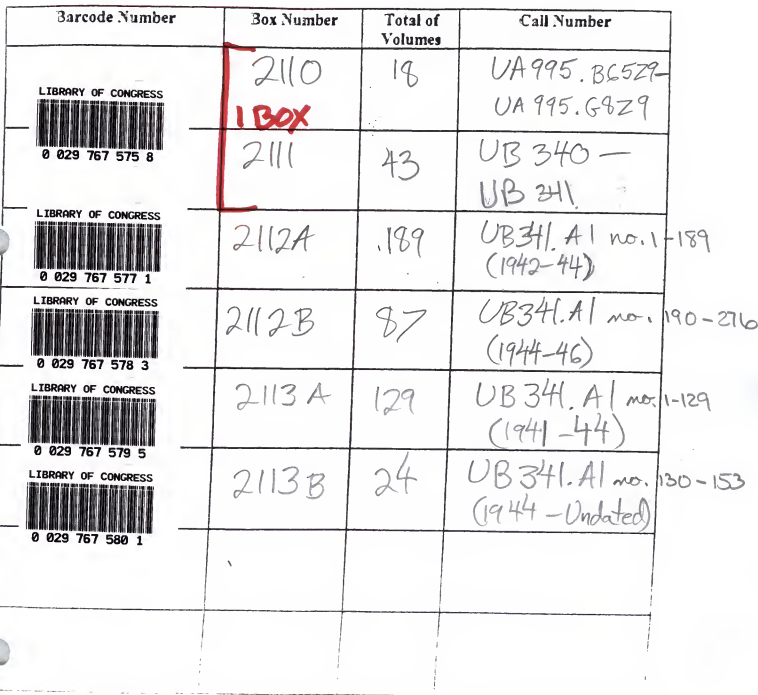 Barcode Number Box Number Total of Volumes Call Number
LIBRARY OF CONGRESS
0 029 767 575 8
2110 18 UA995.BG5Z9-
1 BOX UA 995.G8Z9
2111 43 UB 340 —
UB 341
LIBRARY OF CONGRESS
0 029 767 577 1
2112A 189 UB341.A1 no.1-189
(1942-44)
LIBRARY OF CONGRESS
0 029 767 578 3
2112B 87 UB341.A1 no. 190-276
(1944-46)
LIBRARY OF CONGRESS
0 029 767 579 5
2113 A 129 UB 341.A1 no.1-129
(1941-44)
LIBRARY OF CONGRESS
0 029 767 580 1
2113B 24 UB 341.A1 no. 130-153
(1944-Undated)